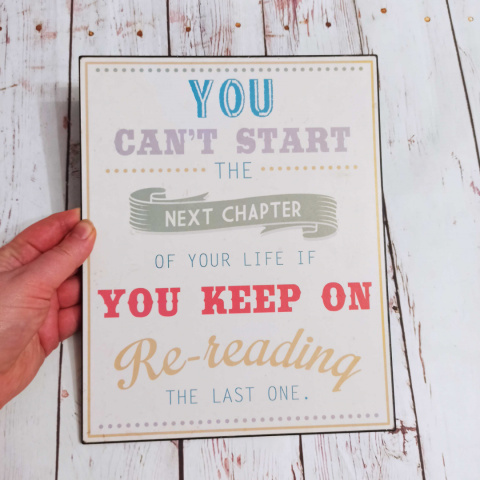 YOU
CAN'T START
THE
NEXT CHAPTER
OF YOUR LIFE IF
YOU KEEP ON
Re-reading
THE LAST ONE.